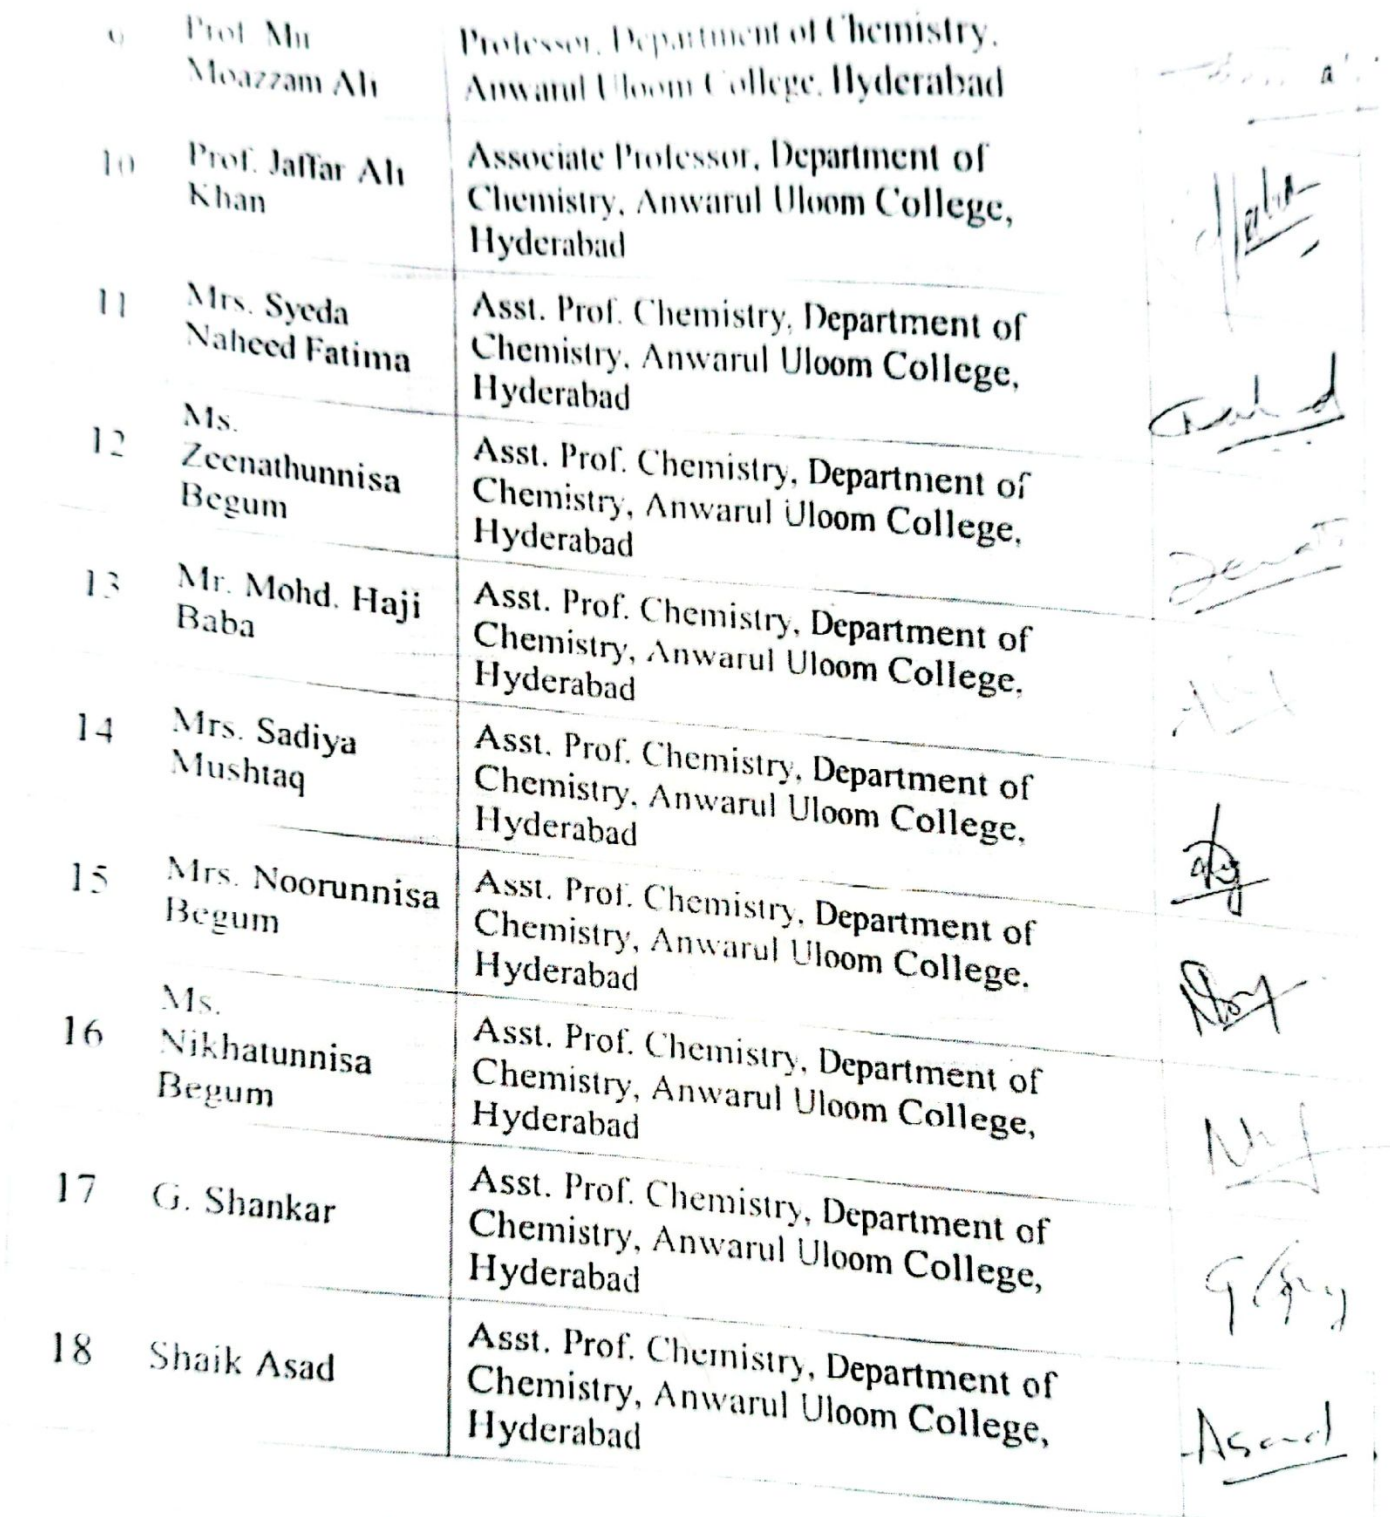 9 Prof. Mir Professor, Department of Chemistry,
Moazzam Ali Anwarul Uloom College, Hyderabad
10 Prof. Jaffar Ali Associate Professor, Department of
Khan Chemistry, Anwarul Uloom College,
Hyderabad
11 Mrs. Syeda Asst. Prof. Chemistry, Department of
Naheed Fatima Chemistry, Anwarul Uloom College,
Hyderabad
Ms.
12 Zeenathunnisa Asst. Prof. Chemistry, Department of
Begum Chemistry, Anwarul Uloom College,
Hyderabad
13 Mr. Mohd. Haji Asst. Prof. Chemistry, Department of
Baba Chemistry, Anwarul Uloom College,
Hyderabad
14 Mrs. Sadiya Asst. Prof. Chemistry, Department of
Mushtaq Chemistry, Anwarul Uloom College,
Hyderabad
15 Mrs. Noorunnisa Asst. Prof. Chemistry, Department of
Begum Chemistry, Anwarul Uloom College.
Hyderabad
Ms.
16 Nikhatunnisa Asst. Prof. Chemistry, Department of
Begum Chemistry, Anwarul Uloom College,
Hyderabad
17 G. Shankar Asst. Prof. Chemistry, Department of
Chemistry, Anwarul Uloom College,
Hyderabad
18 Shaik Asad Asst. Prof. Chemistry, Department of
Chemistry, Anwarul Uloom College,
Hyderabad
Asad